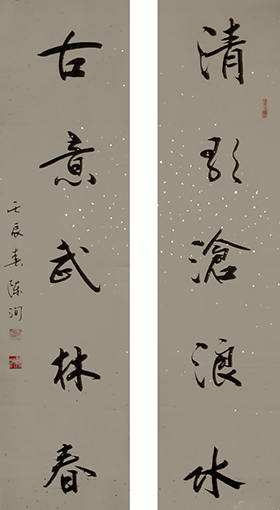 清歌滄浪水
古意武林春
壬辰春陳洵